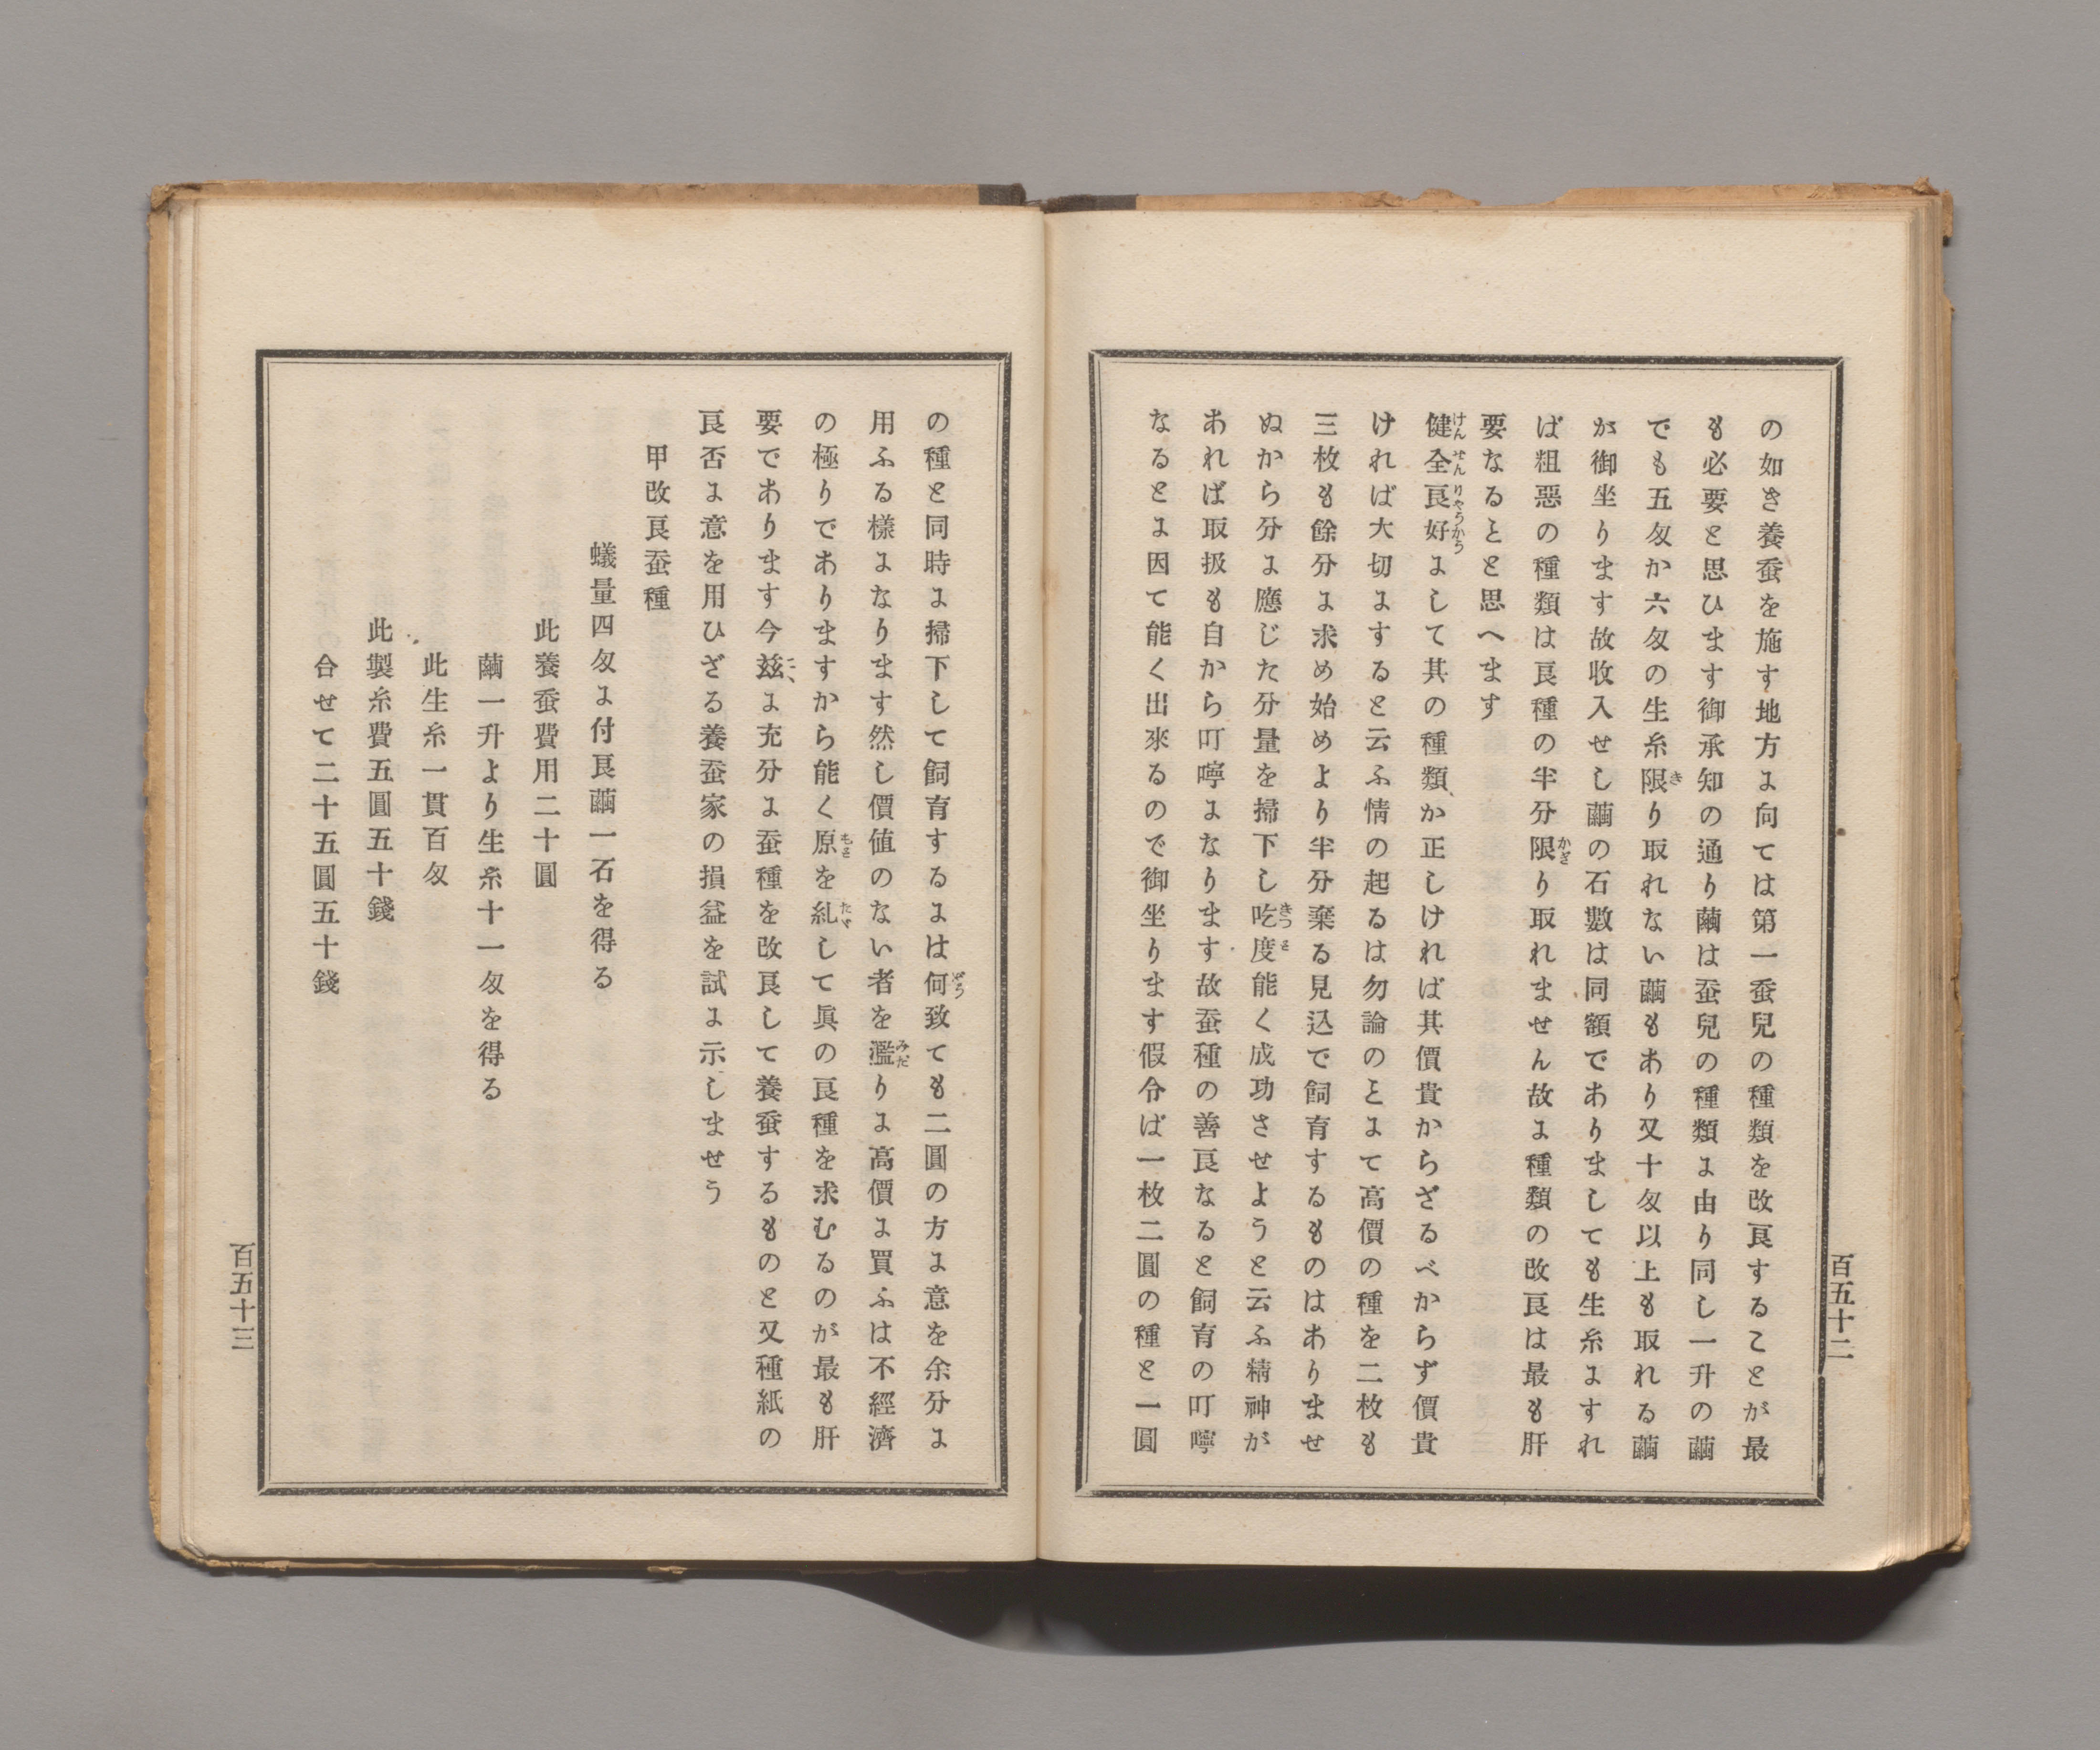 の如き養蚕を施す地方に向ては第一蚕兒の種類を改良することが最
も必要と思ひます御承知の通り繭は蚕兒の種類に由り同し一升の繭
でも五匁か六匁の生糸限り取れない繭もあり又十匁以上も取れる繭
が御坐ります故收入せし繭の石數は同額でありましても生糸にすれ
ば粗惡の種類は良種の半分限り取れません故に種類の改良は最も肝
要なることと思へます
健全良好にして其の種類、か正しければ其價貴からざるべからず價貴
ければ大切にすると云ふ情の起るは勿論のことにて高價の種を二枚も
三枚も餘分に求め始めより半分棄る見込で飼育するものはありませ
ぬから分に應じた分量を掃下し吃度能く成功させようと云ふ精神が
あれば取扱も自から叮嚀になります故蚕種の善良なると飼育の叮嚀
なるとに因て能く出來るので御坐ります假令ば一枚二圓の種と一圓
百五十二
の種と同時に掃下して飼育するには何致ても二圓の方に意を余分に
用ふる樣になります然し價値のない者を濫りに高價に買ふは不經濟
の極りでありますから能く原を糺して眞の良種を求むるのが最も肝
要であります今玆に充分に蚕種を改良して養蚕するものと又種紙の
良否に意を用ひざる養蚕家の損益を試に示しませう
甲改良蚕種
蟻量四匁に付良繭一石を得る
此養蚕費用二十圓
繭一升より生糸十一匁を得る
此生糸一貫百匁
此製糸費五圓五十錢
合せて二十五圓五十錢
百五十三